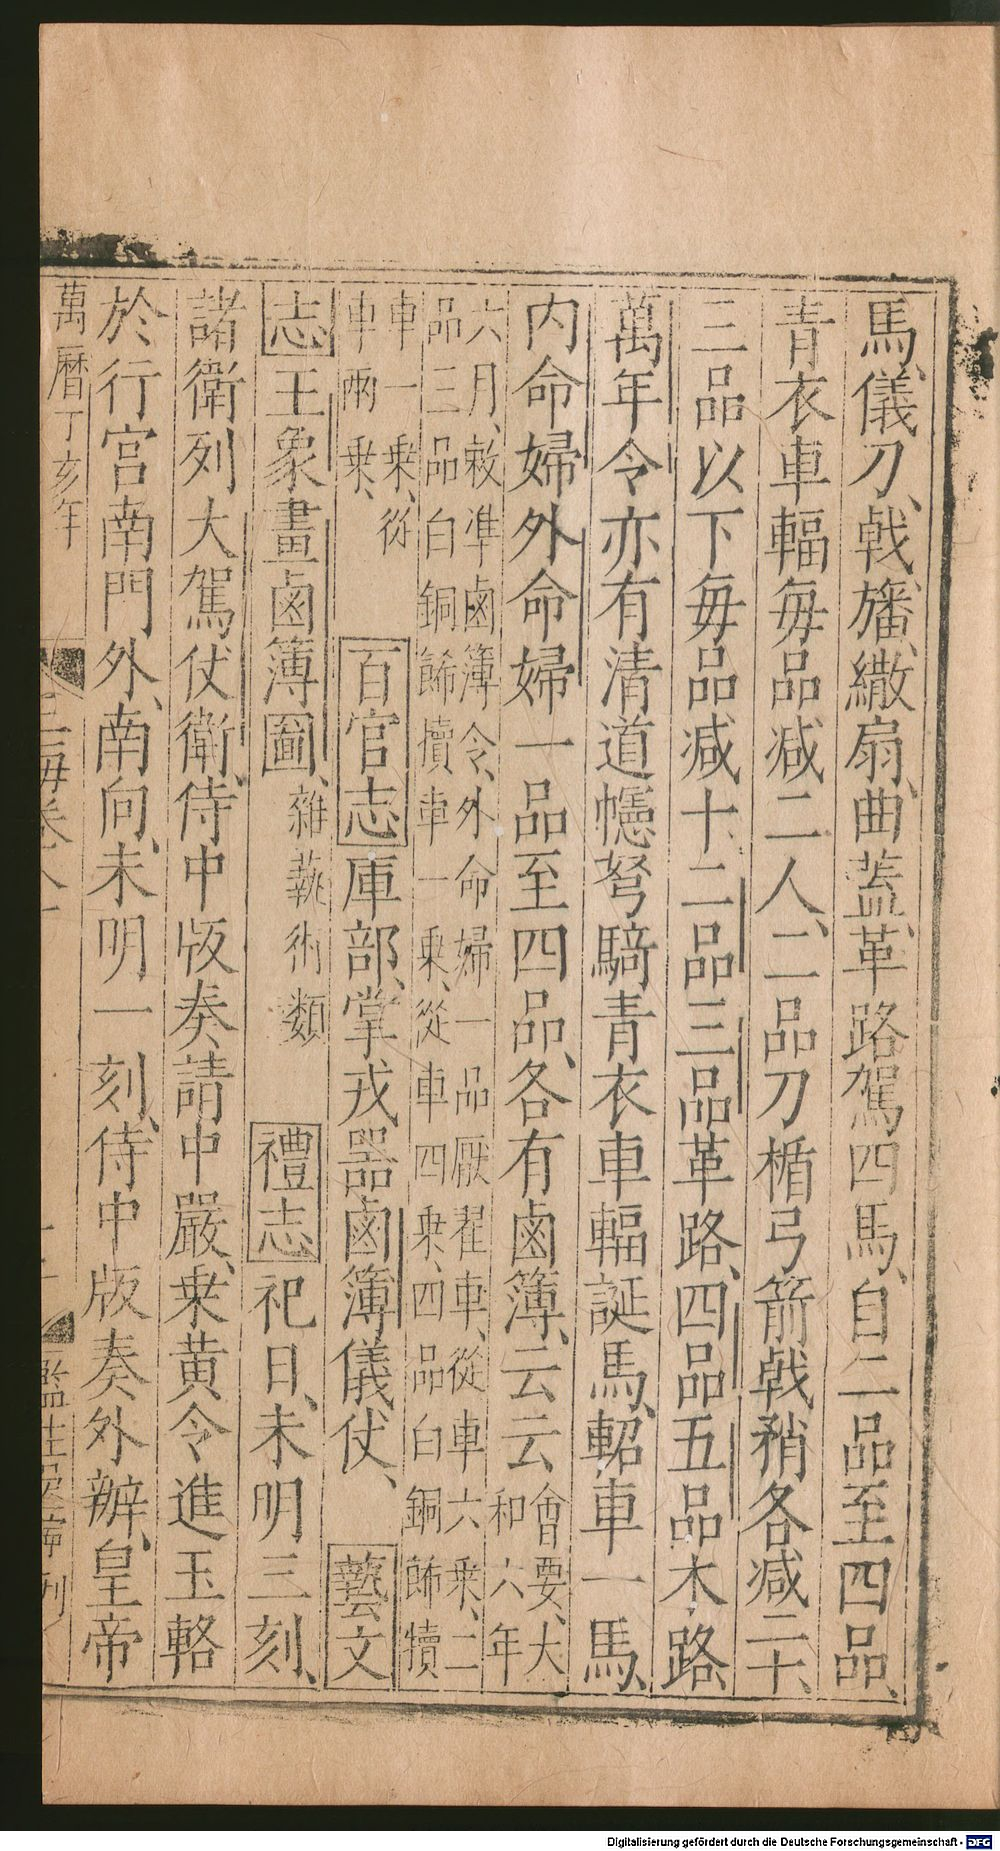 馬、儀刀、戟旛、繖扇、曲蓋、革路駕四馬、自二品至四品、
青衣車輻每品减二人、二品刀楯弓箭戟矟各减二十、
三品以下每品减十二品三品革路、四品五品木路、
萬年令亦有清道幰弩騎青衣車輻誕馬、軺車一馬、
内命婦外命婦一品至四品、各有鹵簿、云云會要、大
和六年
六月、敕準鹵簿令、外命婦一品厭翟車、從車六乗、二
品三品白銅飾犢車一乗、從車四乗、四品白銅飾犢
車一乗、從
車兩乗、
百官志庫部、掌戎器鹵簿儀仗、藝文
志王象畫鹵簿圖、雜藝術類禮志祀日、未明三刻、
諸衛列大駕仗衛、侍中版奏、請中嚴、乗黃令進玉輅
於行宫南門外、南向、未明一刻、侍中版奏外辦、皇帝
萬曆丁亥年
監生
刊
Digitalisierung gefördert durch die Deutsche Forschungsgemeinschaft - DFG